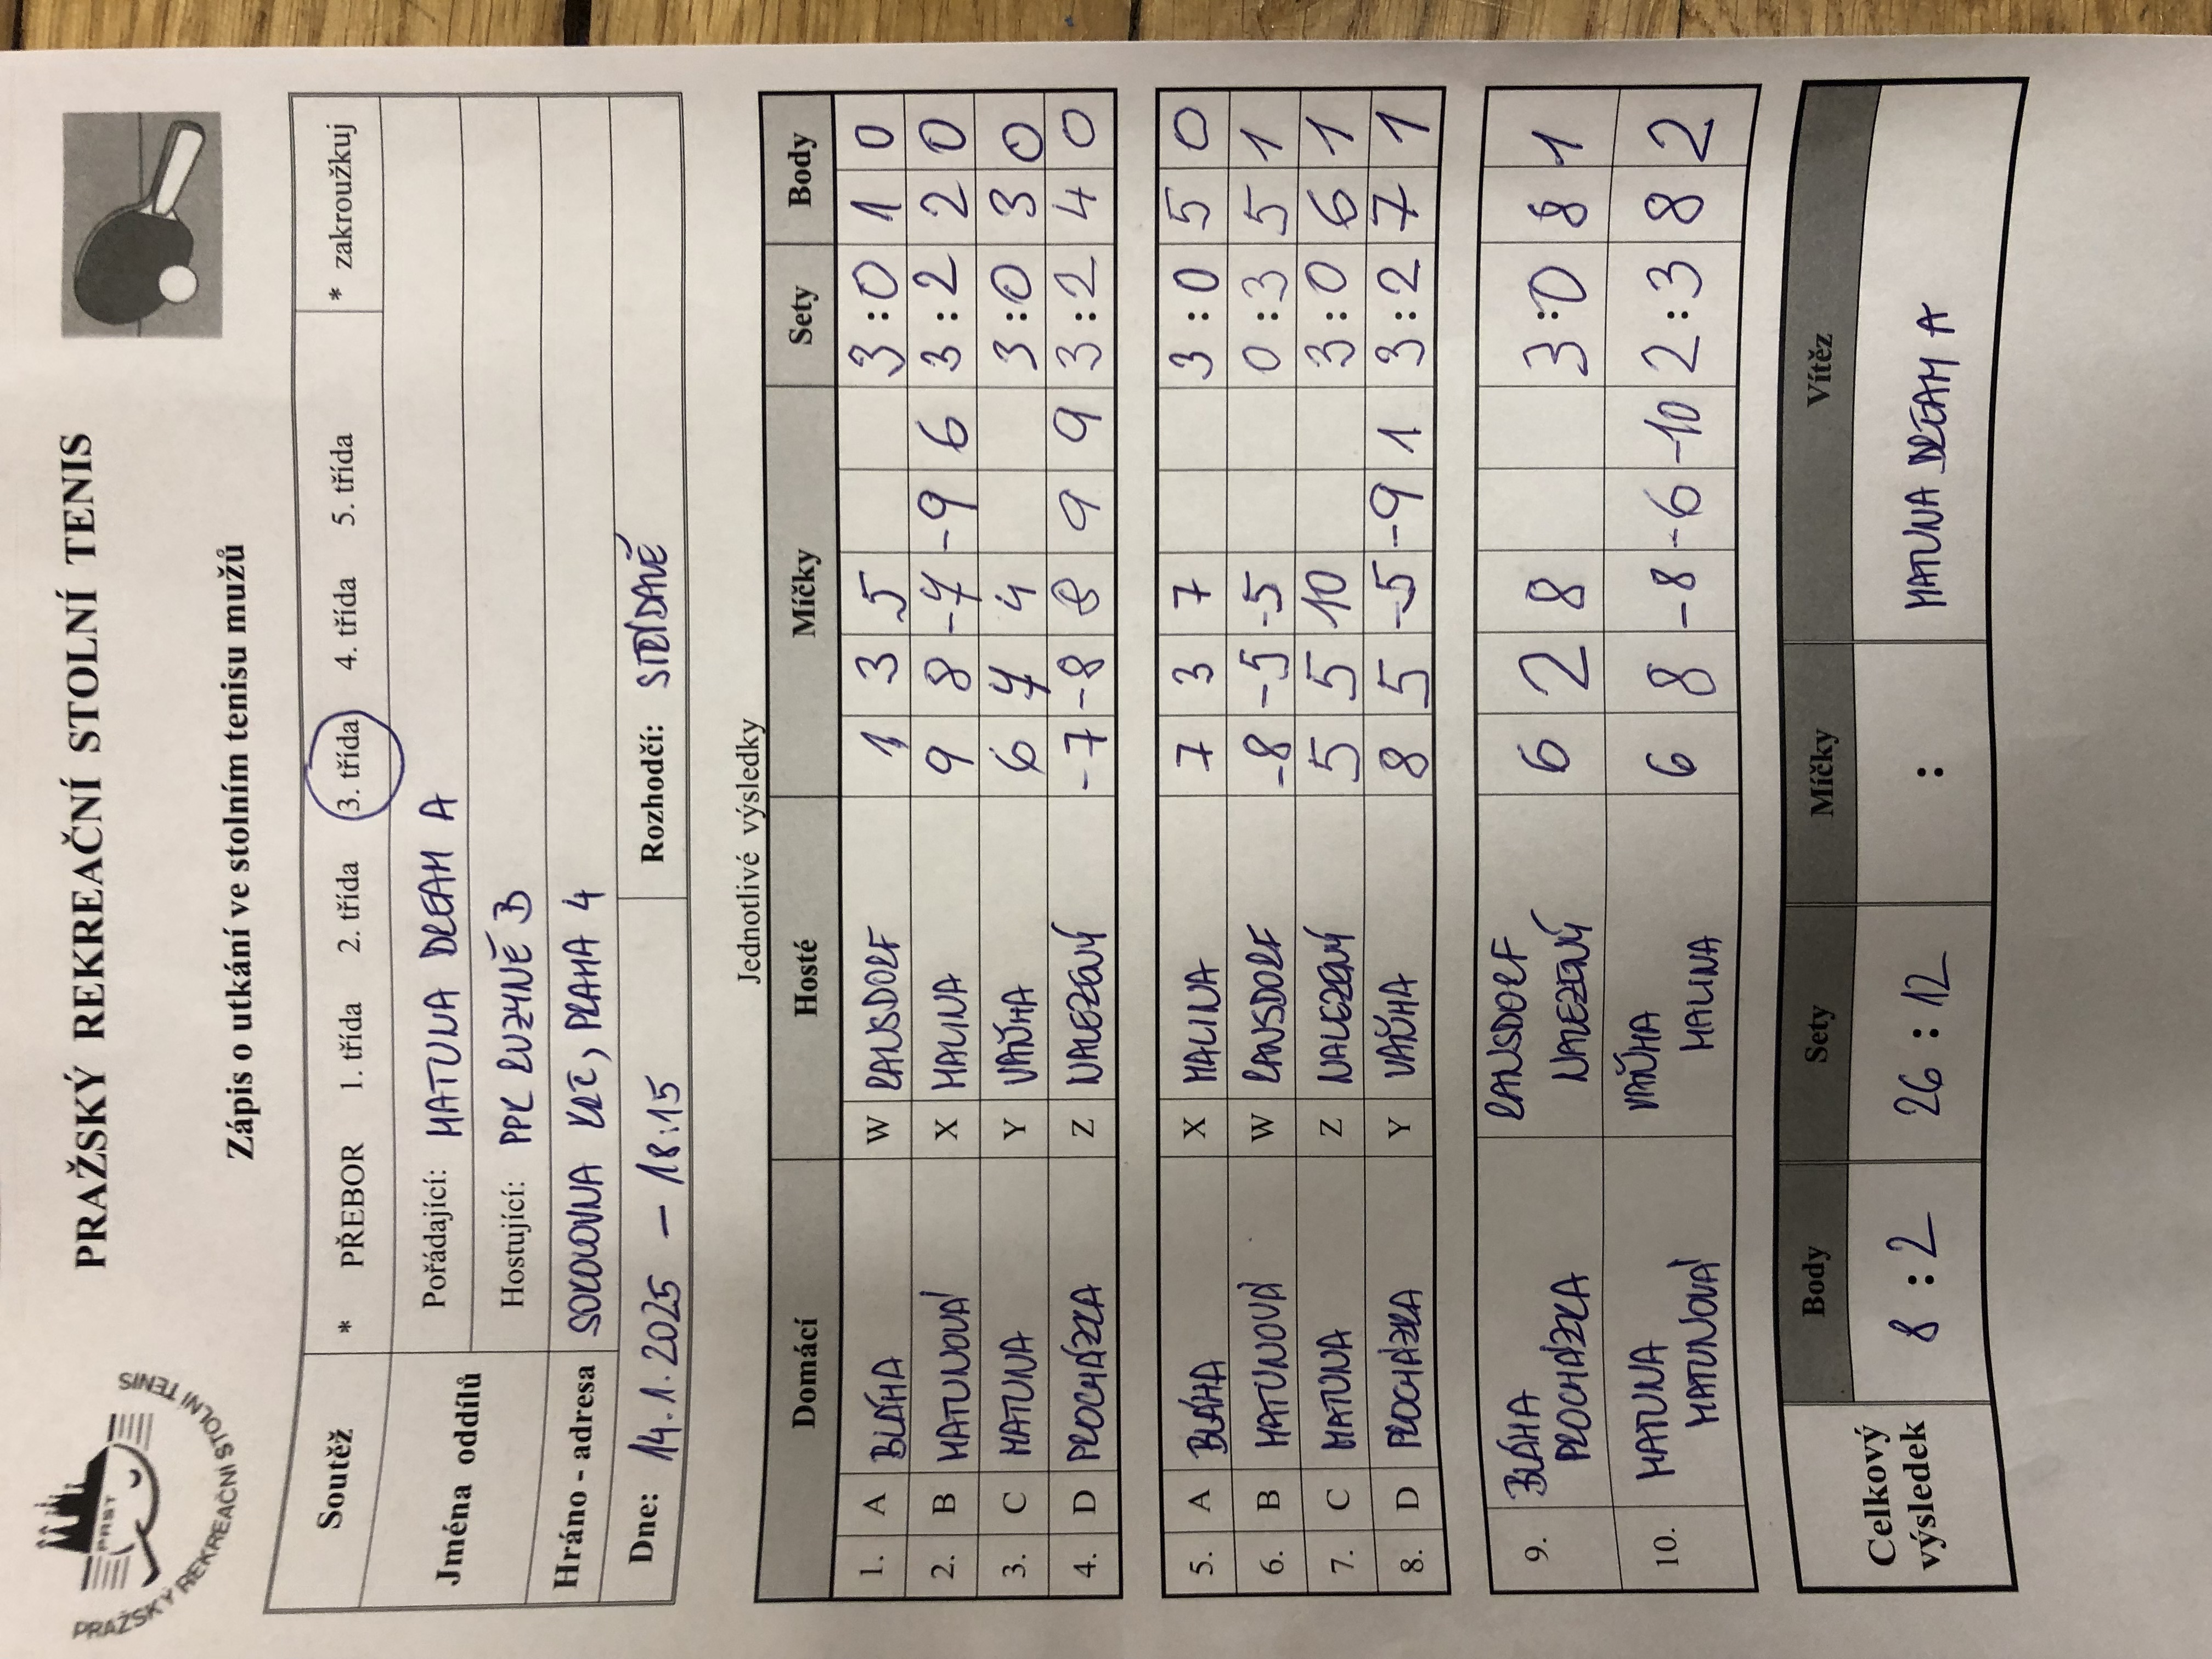 PRAŽSKÝ REKREAČNÍ STOLNÍ TENIS
PRST
PRAŽSKÝ REKREAČNÍ STOLNÍ TENIS
Zápis o utkání ve stolním tenisu mužů
Soutěž * PŘEBOR 1. třída 2. třída 3. třída 4. třída 5. třída * zakroužkuj
Jména oddílů Pořádající: MATUNA DREAM A
Hostující: PPL RUZYNĚ B
Hráno - adresa SOKOLOVNA KRČ, PRAHA 4
Dne: 14.1.2025 – 18:15 Rozhodčí: STŘÍDAVĚ
Jednotlivé výsledky
Domácí Hosté Míčky Sety Body
1. A BLÁHA W RANSDORF 1 3 5 3:0 1 0
2. B MATUNOVÁ X MALINA 9 8 -7 -9 6 3:2 2 0
3. C MATUNA Y VAŇHA 6 7 4 3:0 3 0
4. D PROCHÁZKA Z NALEZENÝ -7 -8 8 9 9 3:2 4 0
5. A BLÁHA X MALINA 7 3 7 3:0 5 0
6. B MATUNOVÁ W RANSDORF -8 -5 -5 0:3 5 1
7. C MATUNA Z NALEZENÝ 5 5 10 3:0 6 1
8. D PROCHÁZKA Y VAŇHA 8 5 -5 -9 1 3:2 7 1
9. BLÁHA RANSDORF 6 2 8 3:0 8 1
PROCHÁZKA NALEZENÝ
10. MATUNA VAŇHA 6 8 -8 -6 -10 2:3 8 2
MATUNOVÁ MALINA
Celkový výsledek Body Sety Míčky Vítěz
8:2 26:12 : MATUNA DREAM A